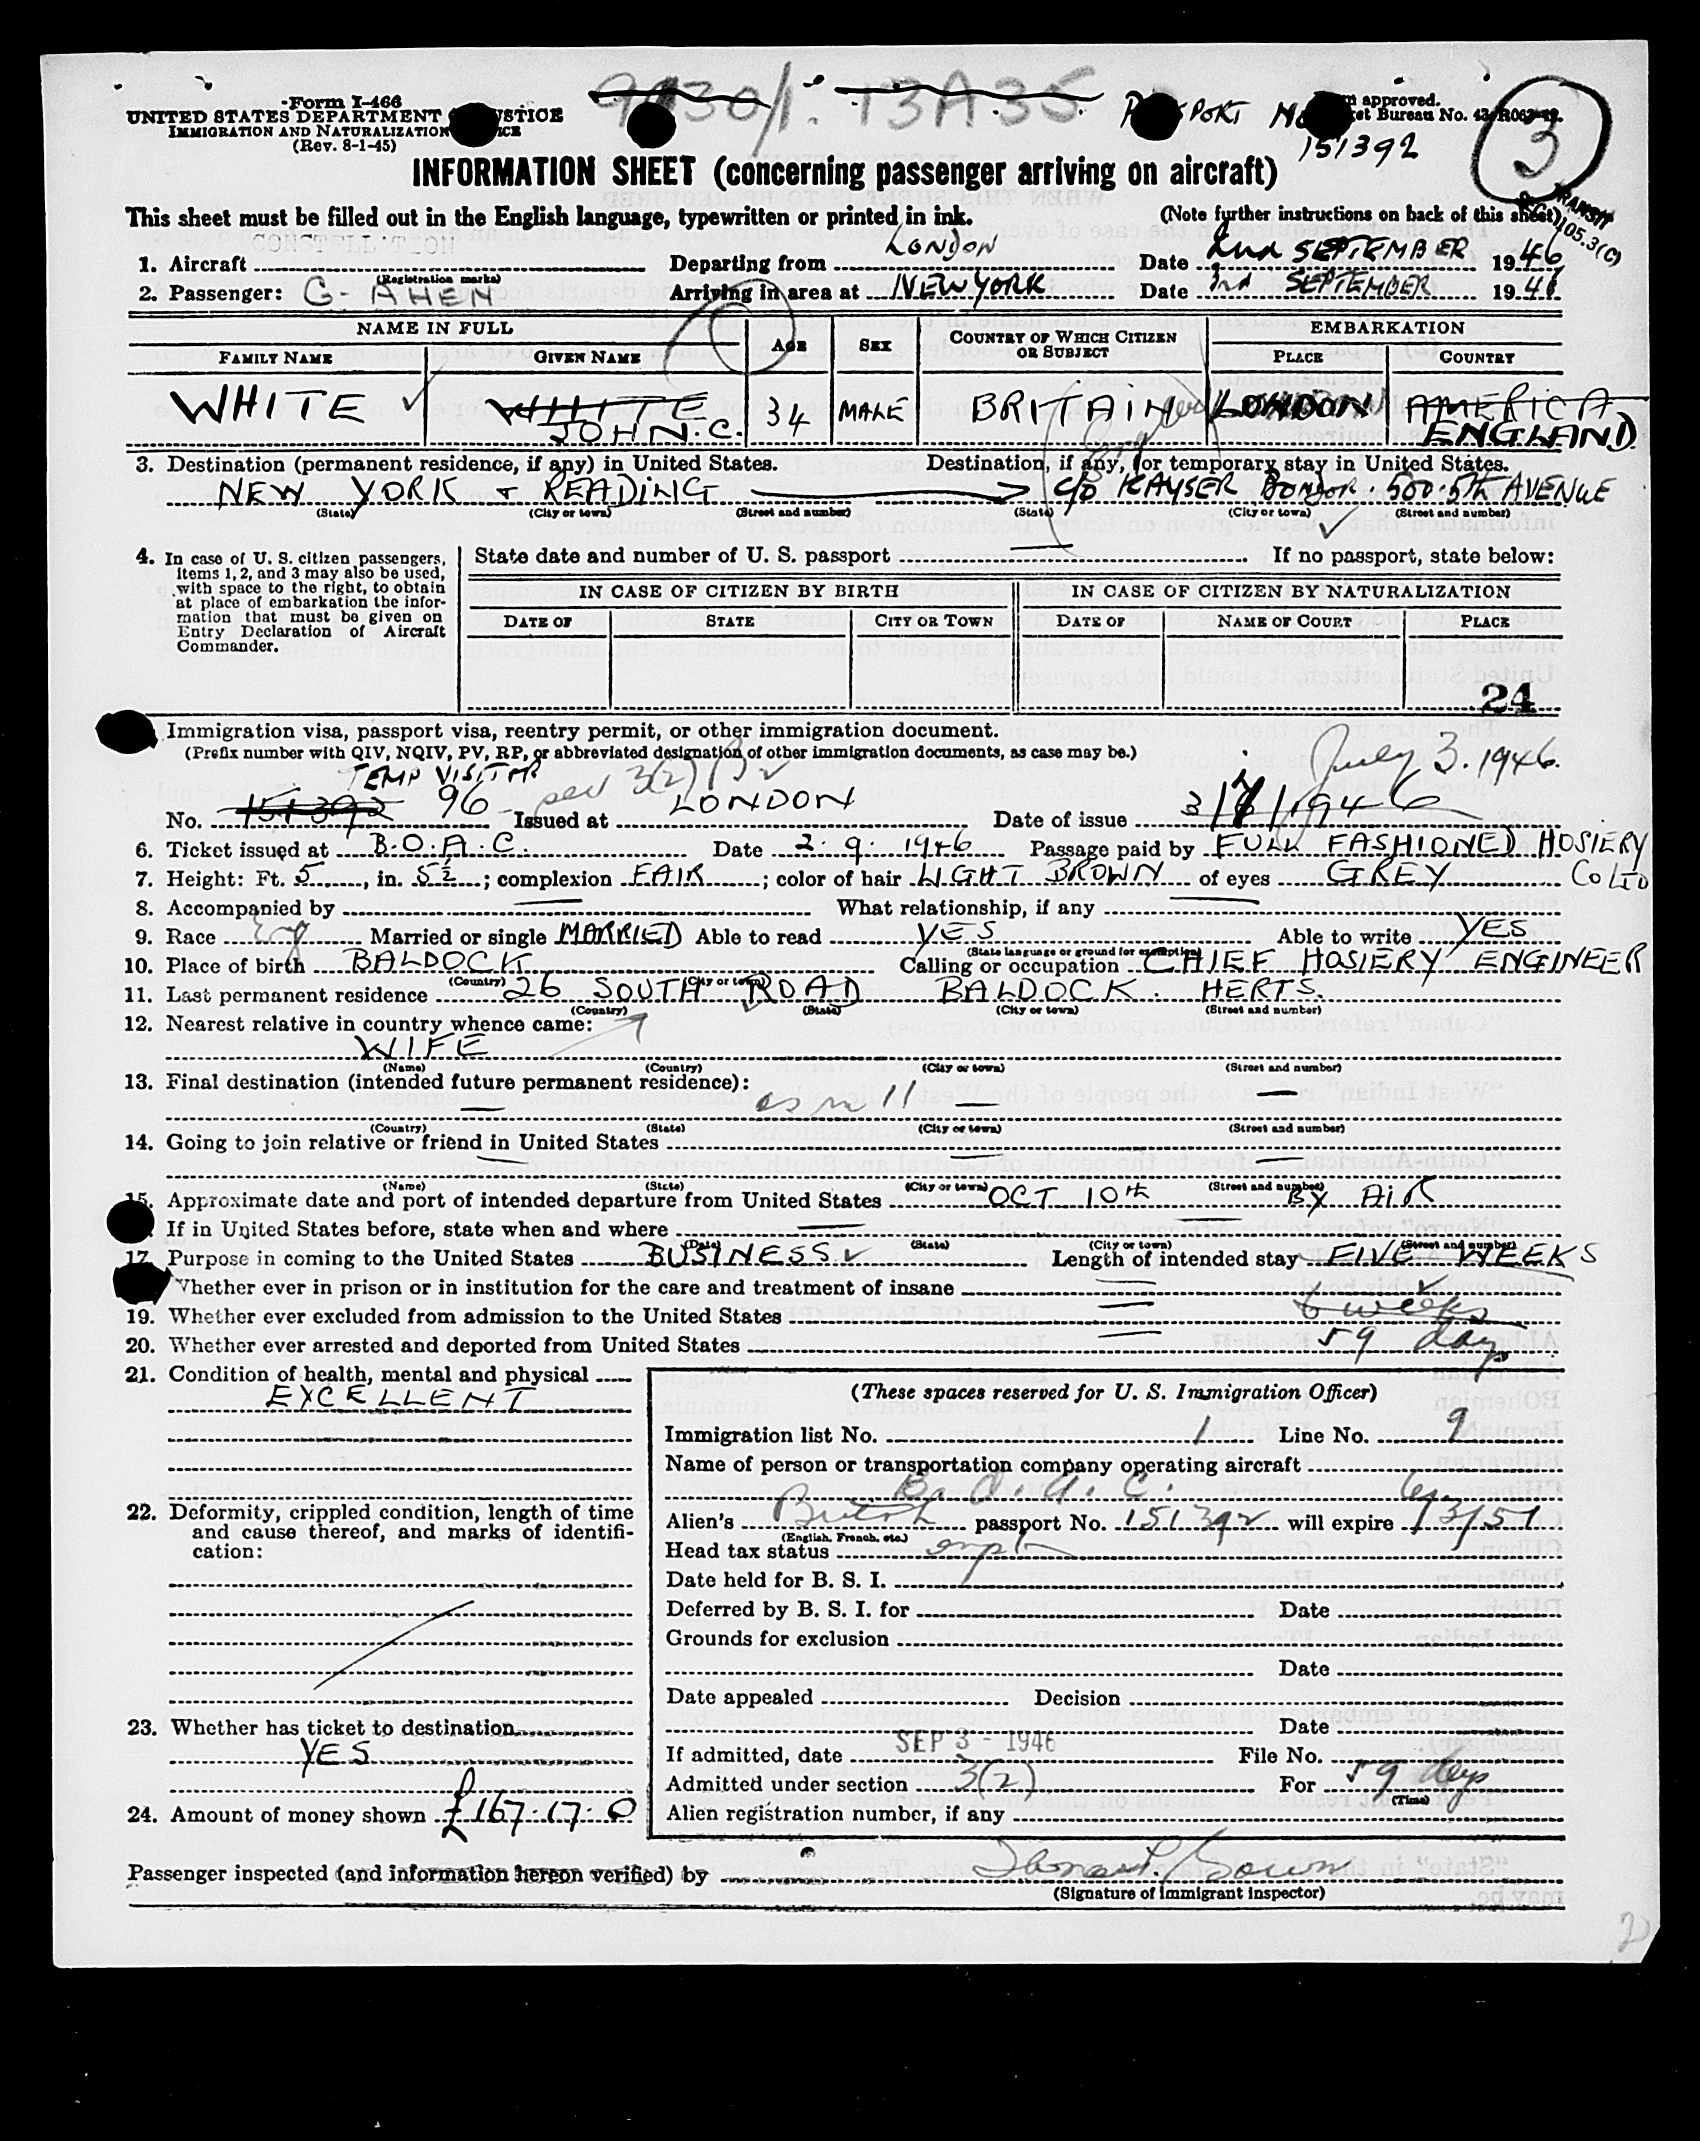 Form I-466
UNITED STATES DEPARTMENT
IMMIGRATION AND NATURALIZATION
(Rev. 8-1-45)
9130/1. 13A35
PASSPORT No
151392
approved.
Bureau No.
3
INFORMATION SHEET (concerning passenger arriving on aircraft)
This sheet must be filled out in the English language, typewritten or printed in ink. (Note further instructions on back of this sheet)
TRANSIT
105.3(C)
1. Aircraft Departing from LONDON Date 2nd SEPTEMBER 1946
(Registration marks)
2. Passenger: G-AHEN Arriving in area at NEW YORK Date 3rd SEPTEMBER 1946
NAME IN FULL AGE SEX COUNTRY OF WHICH CITIZEN OR SUBJECT EMBARKATION
FAMILY NAME GIVEN NAME PLACE COUNTRY
WHITE WHITE 34 MALE BRITAIN LONDON AMERICA
JOHN.C. ENGLAND
3. Destination (permanent residence, if any) in United States. Destination, if any, for temporary stay in United States.
NEW YORK + READING c/o KAYSER Bondor. 500.5th AVENUE
(State) (City or town) (Street and number) (State) (City or town) (Street and number)
4. In case of U. S. citizen passengers, items 1, 2, and 3 may also be used, with space to the right, to obtain at place of embarkation the information that must be given on Entry Declaration of Aircraft Commander.
State date and number of U. S. passport If no passport, state below:
IN CASE OF CITIZEN BY BIRTH IN CASE OF CITIZEN BY NATURALIZATION
DATE OF STATE CITY OR TOWN DATE OF NAME OF COURT PLACE
24
Immigration visa, passport visa, reentry permit, or other immigration document.
(Prefix number with QIV, NQIV, PV, RP, or abbreviated designation of other immigration documents, as case may be.)
TEMP VISITOR 3(2) July 3. 1946.
No. 151392 96 Issued at LONDON Date of issue 3/7/1946
6. Ticket issued at B.O.A.C. Date 2.9.1946 Passage paid by FULL FASHIONED HOSIERY Co LTD
7. Height: Ft. 5, in. 5½; complexion FAIR; color of hair LIGHT BROWN of eyes GREY
8. Accompanied by What relationship, if any
9. Race Eng Married or single MARRIED Able to read YES Able to write YES
(State language or ground for exemption)
10. Place of birth BALDOCK Calling or occupation CHIEF HOSIERY ENGINEER
(Country) (City or town)
11. Last permanent residence 26 SOUTH ROAD BALDOCK. HERTS.
(Country) (State) (City or town) (Street and number)
12. Nearest relative in country whence came:
WIFE
(Name) (Country) (City or town) (Street and number)
13. Final destination (intended future permanent residence):
as in 11
(Country) (State) (City or town) (Street and number)
14. Going to join relative or friend in United States
(Name) (State) (City or town) (Street and number)
15. Approximate date and port of intended departure from United States OCT 10th BY AIR
If in United States before, state when and where
(Date) (State) (City or town) (Street and number)
17. Purpose in coming to the United States BUSINESS Length of intended stay FIVE WEEKS
Whether ever in prison or in institution for the care and treatment of insane
19. Whether ever excluded from admission to the United States 6 weeks
20. Whether ever arrested and deported from United States 59 days
21. Condition of health, mental and physical
EXCELLENT
22. Deformity, crippled condition, length of time and cause thereof, and marks of identification:
23. Whether has ticket to destination
YES
24. Amount of money shown £167.17.0
(These spaces reserved for U. S. Immigration Officer)
Immigration list No. 1 Line No. 9
Name of person or transportation company operating aircraft
B.O.A.C.
Alien's British passport No. 151392 will expire
(English, French, etc.)
Head tax status
Date held for B. S. I.
Deferred by B. S. I. for Date
Grounds for exclusion
Date
Date appealed Decision
Date
If admitted, date SEP 3 - 1946 File No.
Admitted under section 3(2) For 59 days
(Time)
Alien registration number, if any
Passenger inspected (and information hereon verified) by
(Signature of immigrant inspector)
2